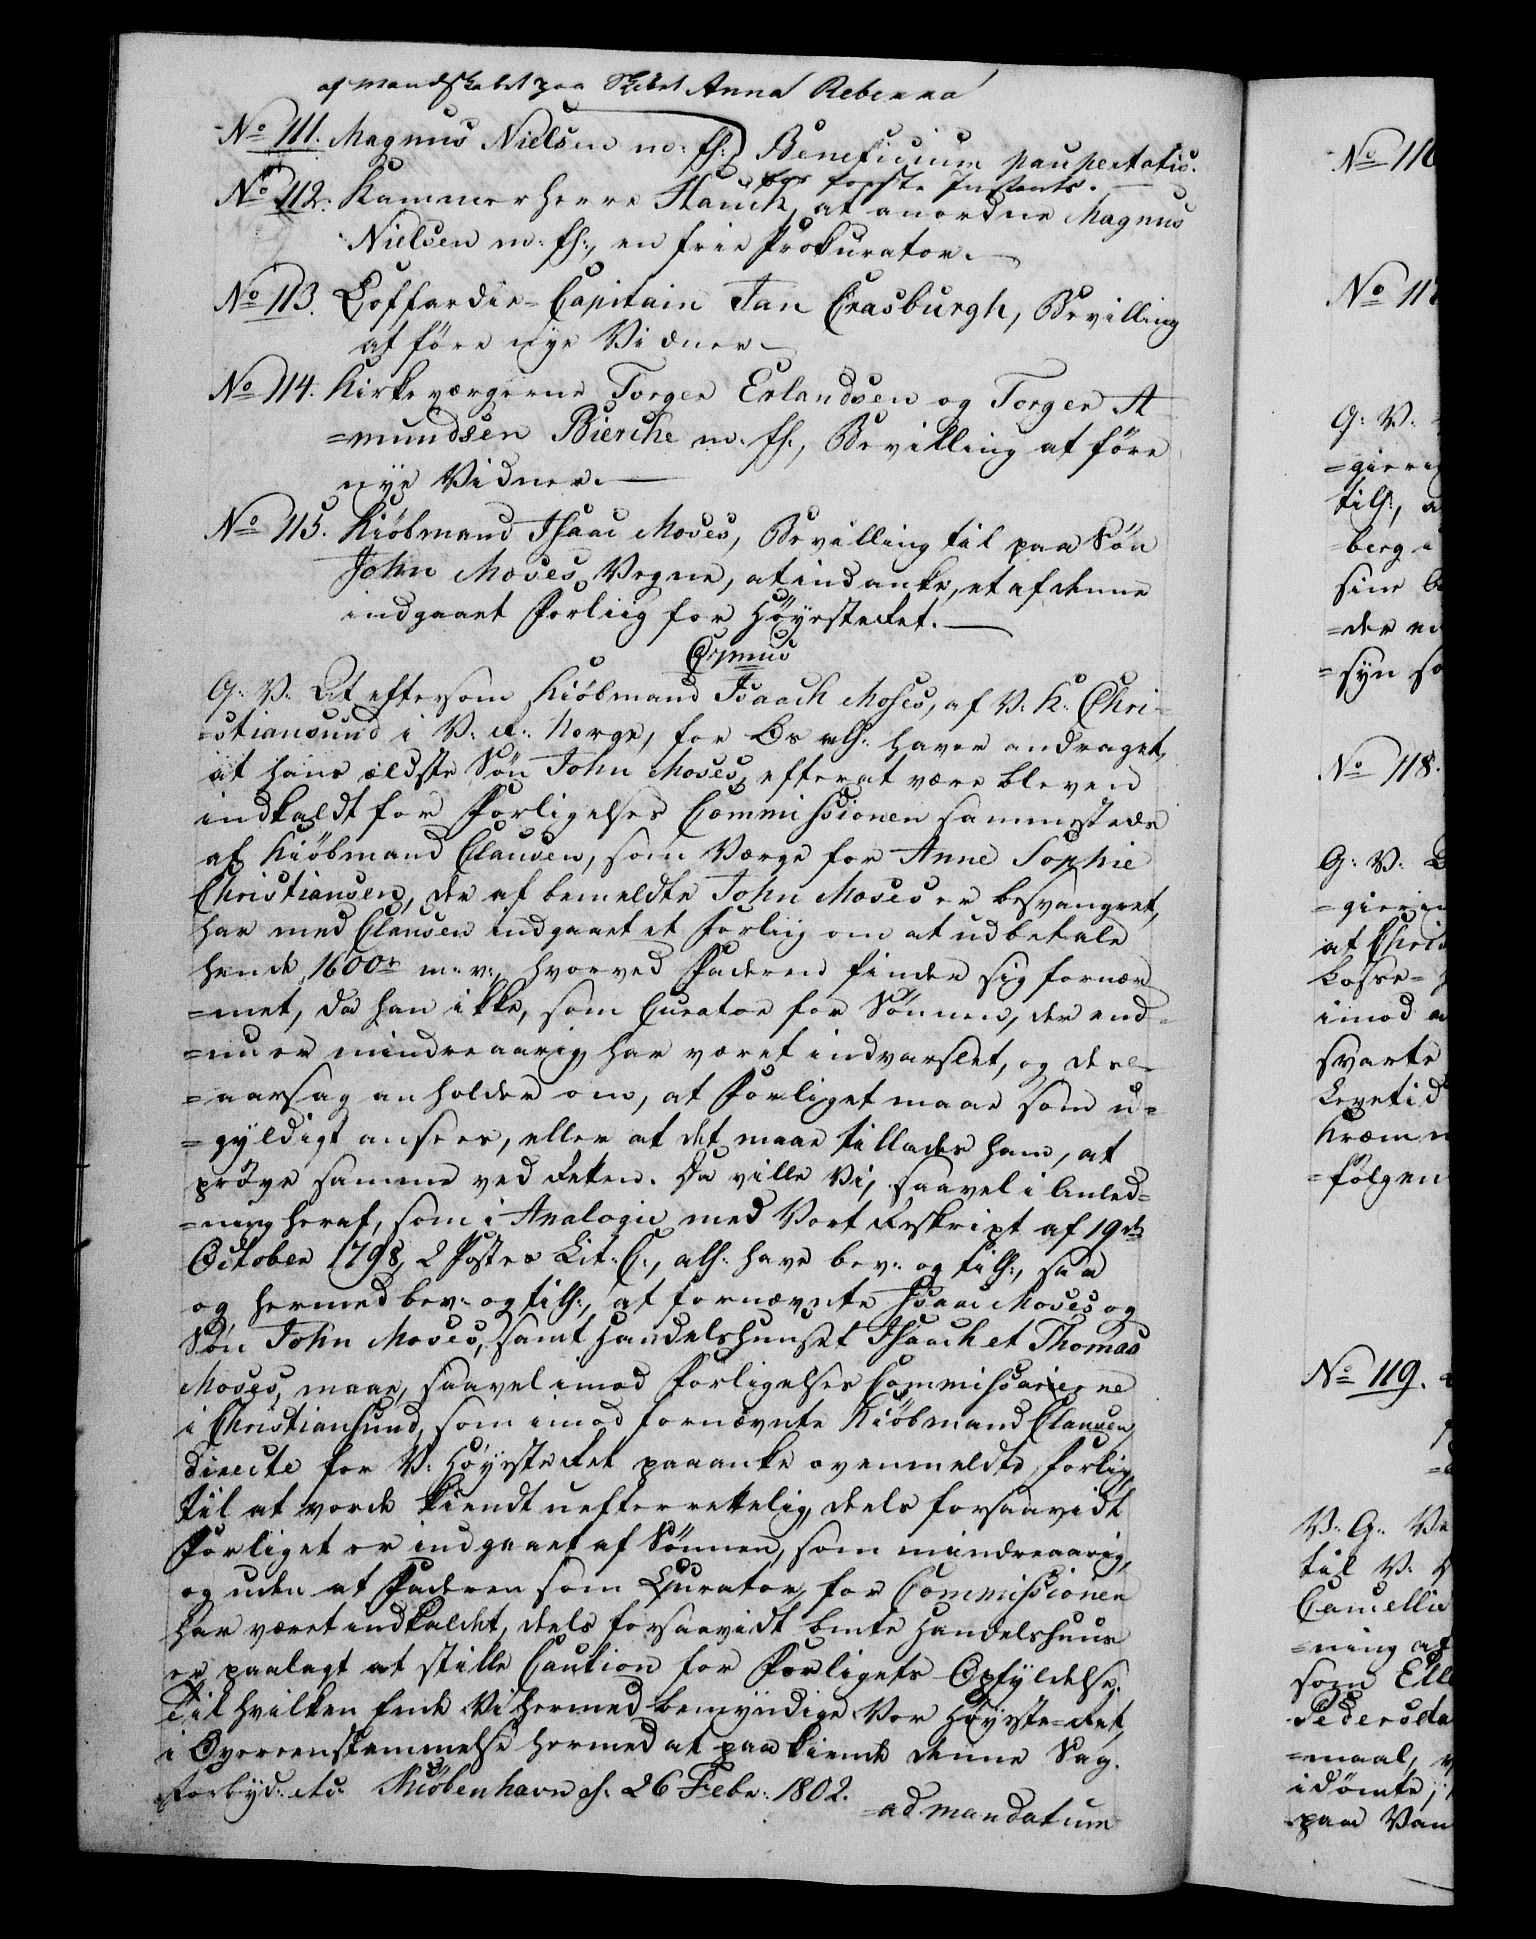 af Mandskabet paa Skibet Anna Rebecca
No 111. Magnus Nielsen m: fl: Beneficium paupertatis.
for første Instants.
No 112. Kammerherre Hauch, at anordne Magnus
Nielsen m: fl:, en frie Prokurator.
No 113. Coffardie-Capitain Jan Crasburgh, Bevilling
at före nye Vidner
No 114. Kirkeværgerne Torger Erlandsen og Torger A-
=mundsen Bierche m: fl:, Bevilling at före
nye Vidner.
No 115. Kiöbmand Isaac Moses, Bevilling til paa Sön
John Moses Vegne, at indanke, et af denne
indgaaet Forliig for Höyesteret.
G: V: At eftersom Kiöbmand Isaach Moses, af V: K: Chri-
=stiansund i V: R: Norge, for Os alh: haver andraget,
at hans ældste Sön John Moses, efter at være bleven
indkaldt for Forligelses Commissionen sammesteds
af Kiöbmand Clausen, som Værge for Anne Sophie
Christiansen, der af bemeldte John Moses er besvangret,
har med Clausen indgaaet et Forliig om at udbetale
hende 1600r m: v:, hvorved Faderen finder sig fornær
=met, da han ikke, som Curator for Sönnen, der end-
=nu er mindreaarig, har været indvarslet, og desl-
=aarsag anholder om, at Forliget maae som u-
=gyldigt ansees, eller at det maae tillades ham, at
pröve samme ved Retten. Da ville Vi, saavel i Anled-
=ning heraf, som i Analogie med Vort Reskript af 19de
October 1798, 2 Postes Lit: C:, alh: have bev: og tilh:, saa
og hermed bev: og tilh:, at fornævnte Isaac Moses og
Sön John Moses, samt Handelshuuset Isaach et Thomas
Moses, maae, saavel imod Forligelses Commissairerne
i Christiansund, som imod fornævnte Kiöbmand Clausen,
directe for V: Höyesteret paaanke ovenmeldte Forlig,
til at vorde kiendt uefterrettelig, deels forsaavidt
Forliget er indgaaet af Sönnen, som mindreaarig,
og uden at Faderen som Curator, for Commissionen
har været indkaldet, deels forsaavidt bmte Handelshuus
er paalagt at stille Caution for Forligets Opfyldelse.
Til hvilken Ende Vi hermed bemyndige Vor Höyeste-Ret,
i Overeenstemmelse hermed at paakiende denne Sag.
Forbyd: etc: Kiöbenhavn d: 26 Febr: 1802.
=ad mandatum
No 116
No 117
G: V:
=gierig
tilh:,
=berg i
sine
=syn so
No 118.
G: V:
=gierin
at Chris
imod
svarte
Levetid
=fölgen
No 119.
V: G: Ve
til V: H
Cancellie
=ning af
som Ell
Pedersda
=maal,
idömte,
paa Van